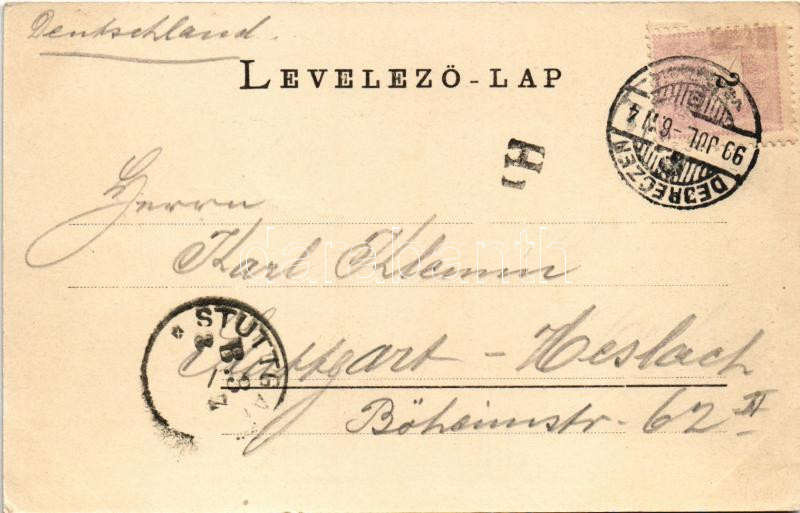 Deutschland.
LEVELEZŐ-LAP
DEBRECZEN
99 JUL. 6. N 4
H
Herrn
Karl Klemm
darabanth
STUTTGA
Stuttgart - Heslach
Böheimstr. 62 II